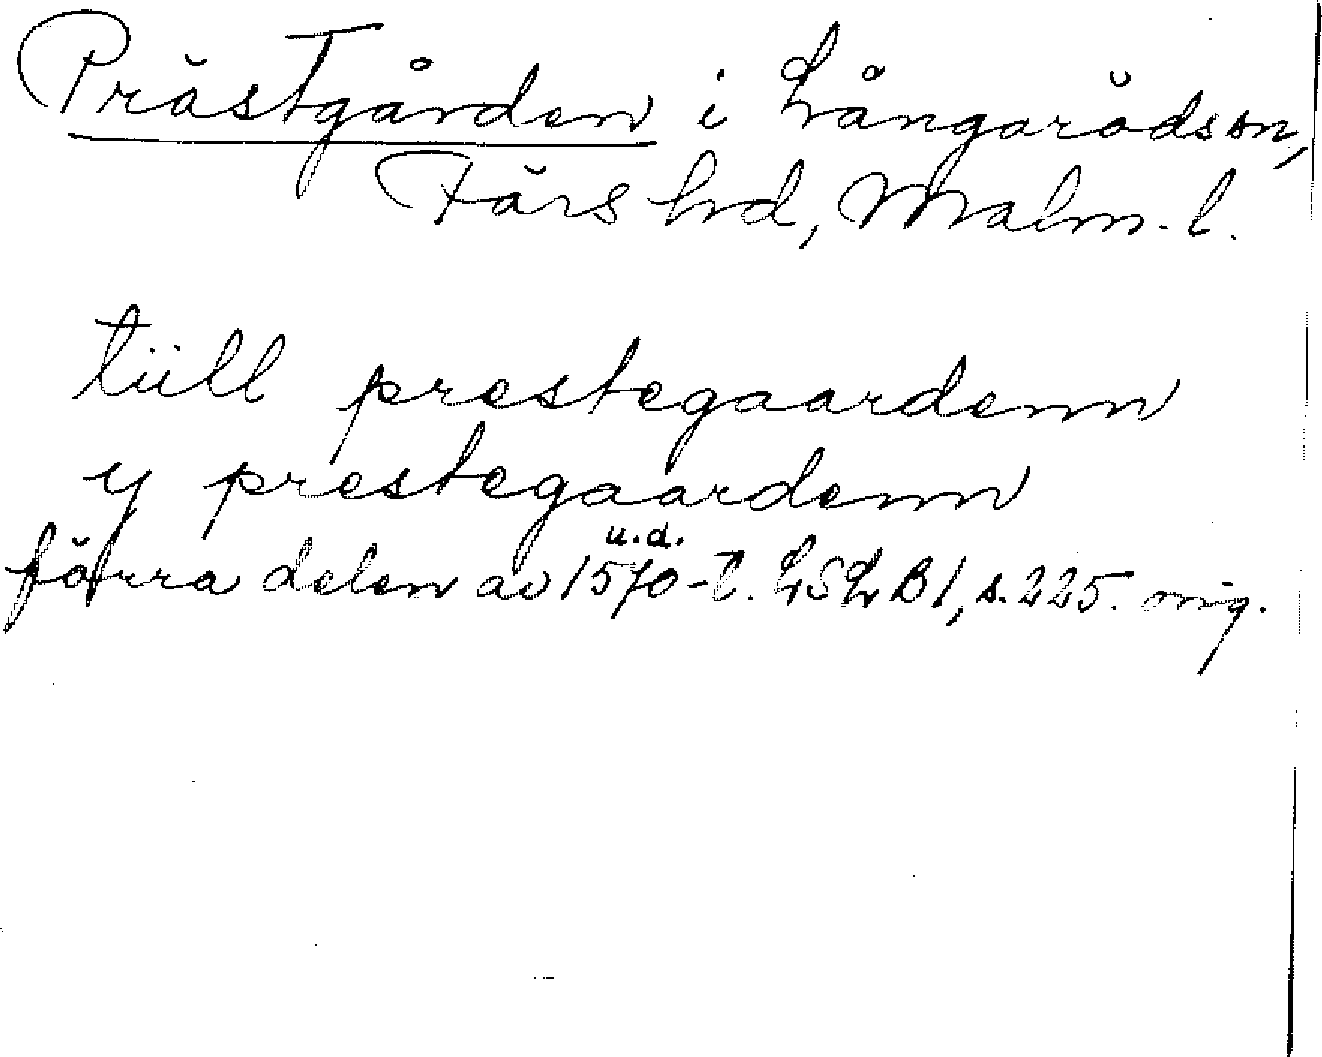 Prästgården i Långarödssn,
Färs hd, Malm. l.
tiill prestegaardenn
y prestegaardenn
u.d.
förra delen av 1570-t. LSLB1, s. 225. orig.